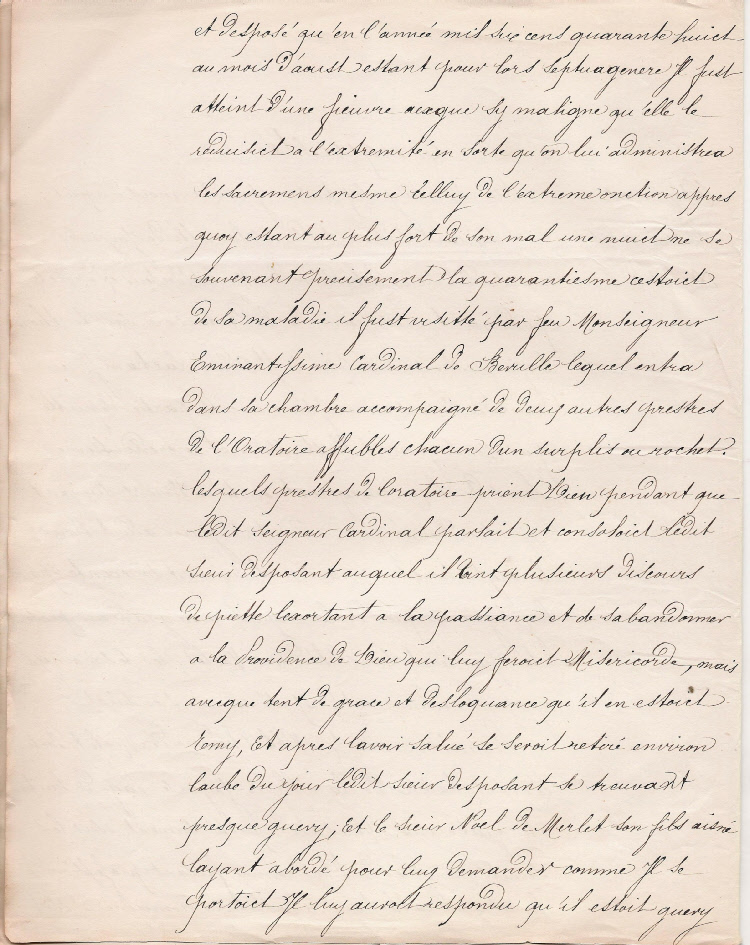 et desposé qu'en l'année mil six cens quarante huict
au mois d'aoust estant pour lors septuagenere Il fust
atteint d'une fieuvre avecque sy maligne qu'elle le
reduisict a l'extremité en sorte qu'on lui administrea
les sacremens mesme celluy de l'extreme onction appres
quoy estant au plus fort de son mal une nuict ne se
souvenant precisement la quarantiesme cestoict
de sa maladie il fust visitté par feu Monseigneur
Eminantissime Cardinal de Berulle lequel entra
dans sa chambre accompaigné de deux autres prestres
de l'Oratoire affubles chacun dun surplis ou rochet.
lesquels prestres de loratoire prient Dieu pendant que
ledit seigneur Cardinal parlait et consoloict ledit
sieur desposant auquel il tint plusieurs discours
de piette lexortant a la passiance et de sabandonner
a la Providence de Dieu qui luy feroict Misericorde, mais
avecque tent de grace et desloquance qu'il en estoict
Emy, Et apres lavoir salué se seroit retiré environ
laube du jour ledit sieur desposant se treuvant
presque guery; Et le sieur Noel de Merlet son fils aisné
layant abordé pour luy demander comme Il se
portoict Il luy auroit respondu qu'il estoit guery